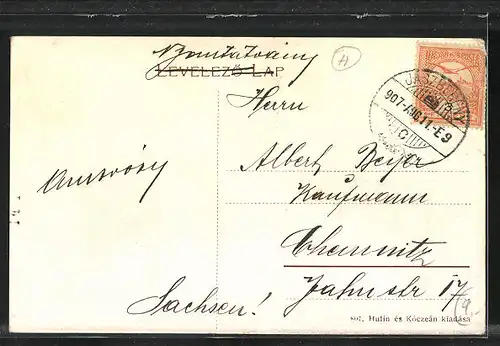 Nyomtatvány
LEVELEZŐ LAP
Herrn
Albert Beyer
Kaufmann
Chemnitz
Jahnstr 17
Sachsen!
907 AUG. 11. E9
Hutin és Kóczeán kiadása